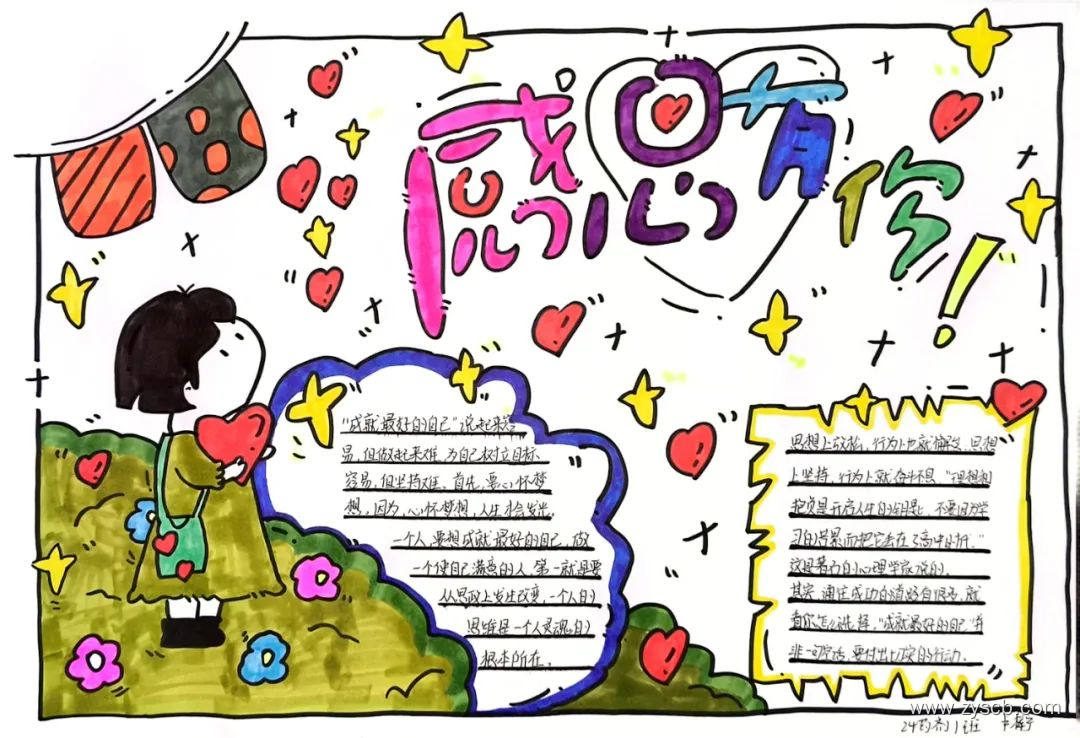 感恩有你!
"成就最好的自己"说起来容
易,但做起来难,为自己树立目标
容易,但坚持难。首先,要心怀梦
想,因为,心怀梦想,人生才会发光,
一个人要想成就最好的自己,做
一个使自己满意的人,第一就是要
从思政上发生改变,一个人的
思维是一个人灵魂的
根本所在。
思想上放松,行为上也就懈怠,思想
上坚持,行为上就奋斗不息"理想和
抱负是开启人生的钥匙,不要因为学
习的
这是著名的心理学家说的,
其实,通往成功的道路有很多,就
看你怎么选择,"成就最好的自己"并
非一句空话,要付出切实的行动。
www.zyscb.com
24药剂1班